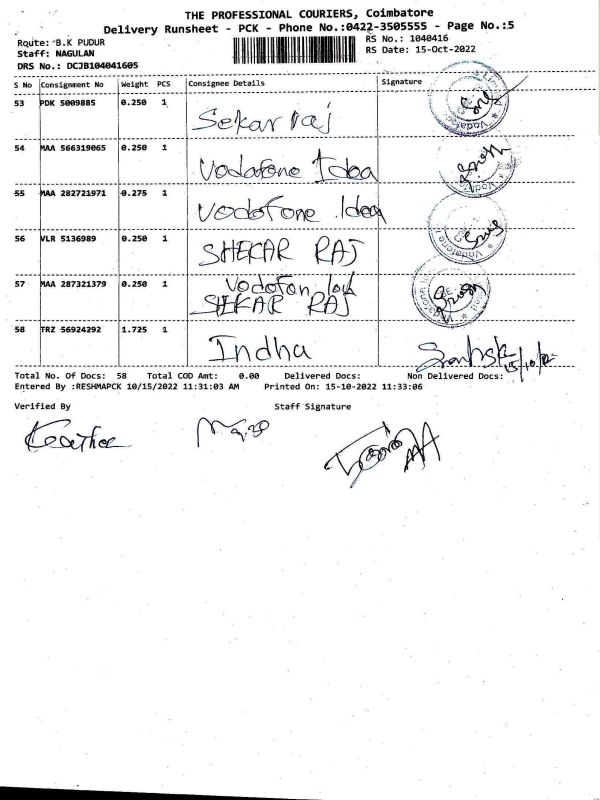 THE PROFESSIONAL COURIERS, Coimbatore
Delivery Runsheet - PCK - Phone No.:0422-3505555 - Page No.:5
Route: B.K PUDUR RS No.: 1040416
Staff: NAGULAN RS Date: 15-Oct-2022
DRS No.: DCJB104041605
S No Consignment No Weight PCS Consignee Details Signature
53 PDK 5009885 0.250 1 Sekar raj
54 MAA 566319065 0.250 1 Vodafone Idea
55 MAA 282721971 0.275 1 Vodofone Idea
56 VLR 5136989 0.250 1 SHEKAR RAJ
57 MAA 287321379 0.250 1 Vodofon
SHEKAR RAJ
58 TRZ 56924292 1.725 1 Indha
15/10/22
Total No. Of Docs: 58 Total COD Amt: 0.00 Delivered Docs: Non Delivered Docs:
Entered By :RESHMAPCK 10/15/2022 11:31:03 AM Printed On: 15-10-2022 11:33:06
Verified By Staff Signature